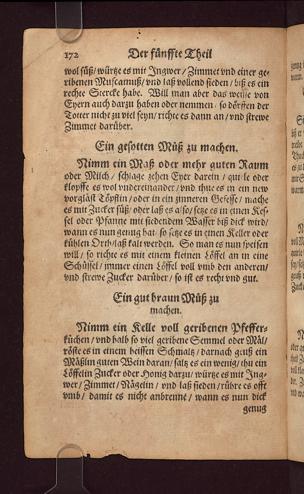 172 Der fünffte Theil
wol süß/ würtze es mit Ingwer/ Zimmet vnd einer ge-
ribenen Muscatnuß/ vnd laß vollend sieden/ biß es ein
rechte Stercke habe. Will man aber das weisse von
Eyern auch darzu haben oder nemmen/ so dörffen der
Totter nicht zu viel seyn/ richte es dann an/ vnd strewe
Zimmet darüber.
Ein gesotten Müß zu machen.
Nimm ein Maß oder mehr guten Raum
oder Milch/ schlage zehen Eyer darein/ vnd
klopffe es wol vndereinander/ vnd thue es in ein new
verglast Töpflin/ oder in ein zinneren Gefesse/ mache
es mit Zucker süß/ oder laß es also/ setze es in einen Kes-
sel oder Pfanne mit siedendem Wasser biß dick wird/
wann es nun genug hat/ so setze es in einen Keller oder
kühlen Orth/ laß kalt werden. So man es nun speisen
will/ so richte es mit einem kleinen Löffel an in eine
Schüssel/ immer einen Löffel voll vmb den anderen/
vnd strewe Zucker darüber/ so ist es recht vnd gut.
Ein gut braun Müß zu
machen.
Nimm ein Kelle voll geribenen Pfeffer-
küchen/ vnd halb so viel geribene Semmel oder Mäl/
röste es in einem heissen Schmaltz/ darnach geuß ein
Mäßlin guten Wein daran/ saltz es ein wenig/ thu ein
Löffelin Zucker oder Honig darzu/ würtze es mit Ing-
wer/ Zimmet/ Nägelin/ vnd laß sieden/ rühre es offt
vmb/ damit es nicht anbrenne/ wann es nun dick
genug